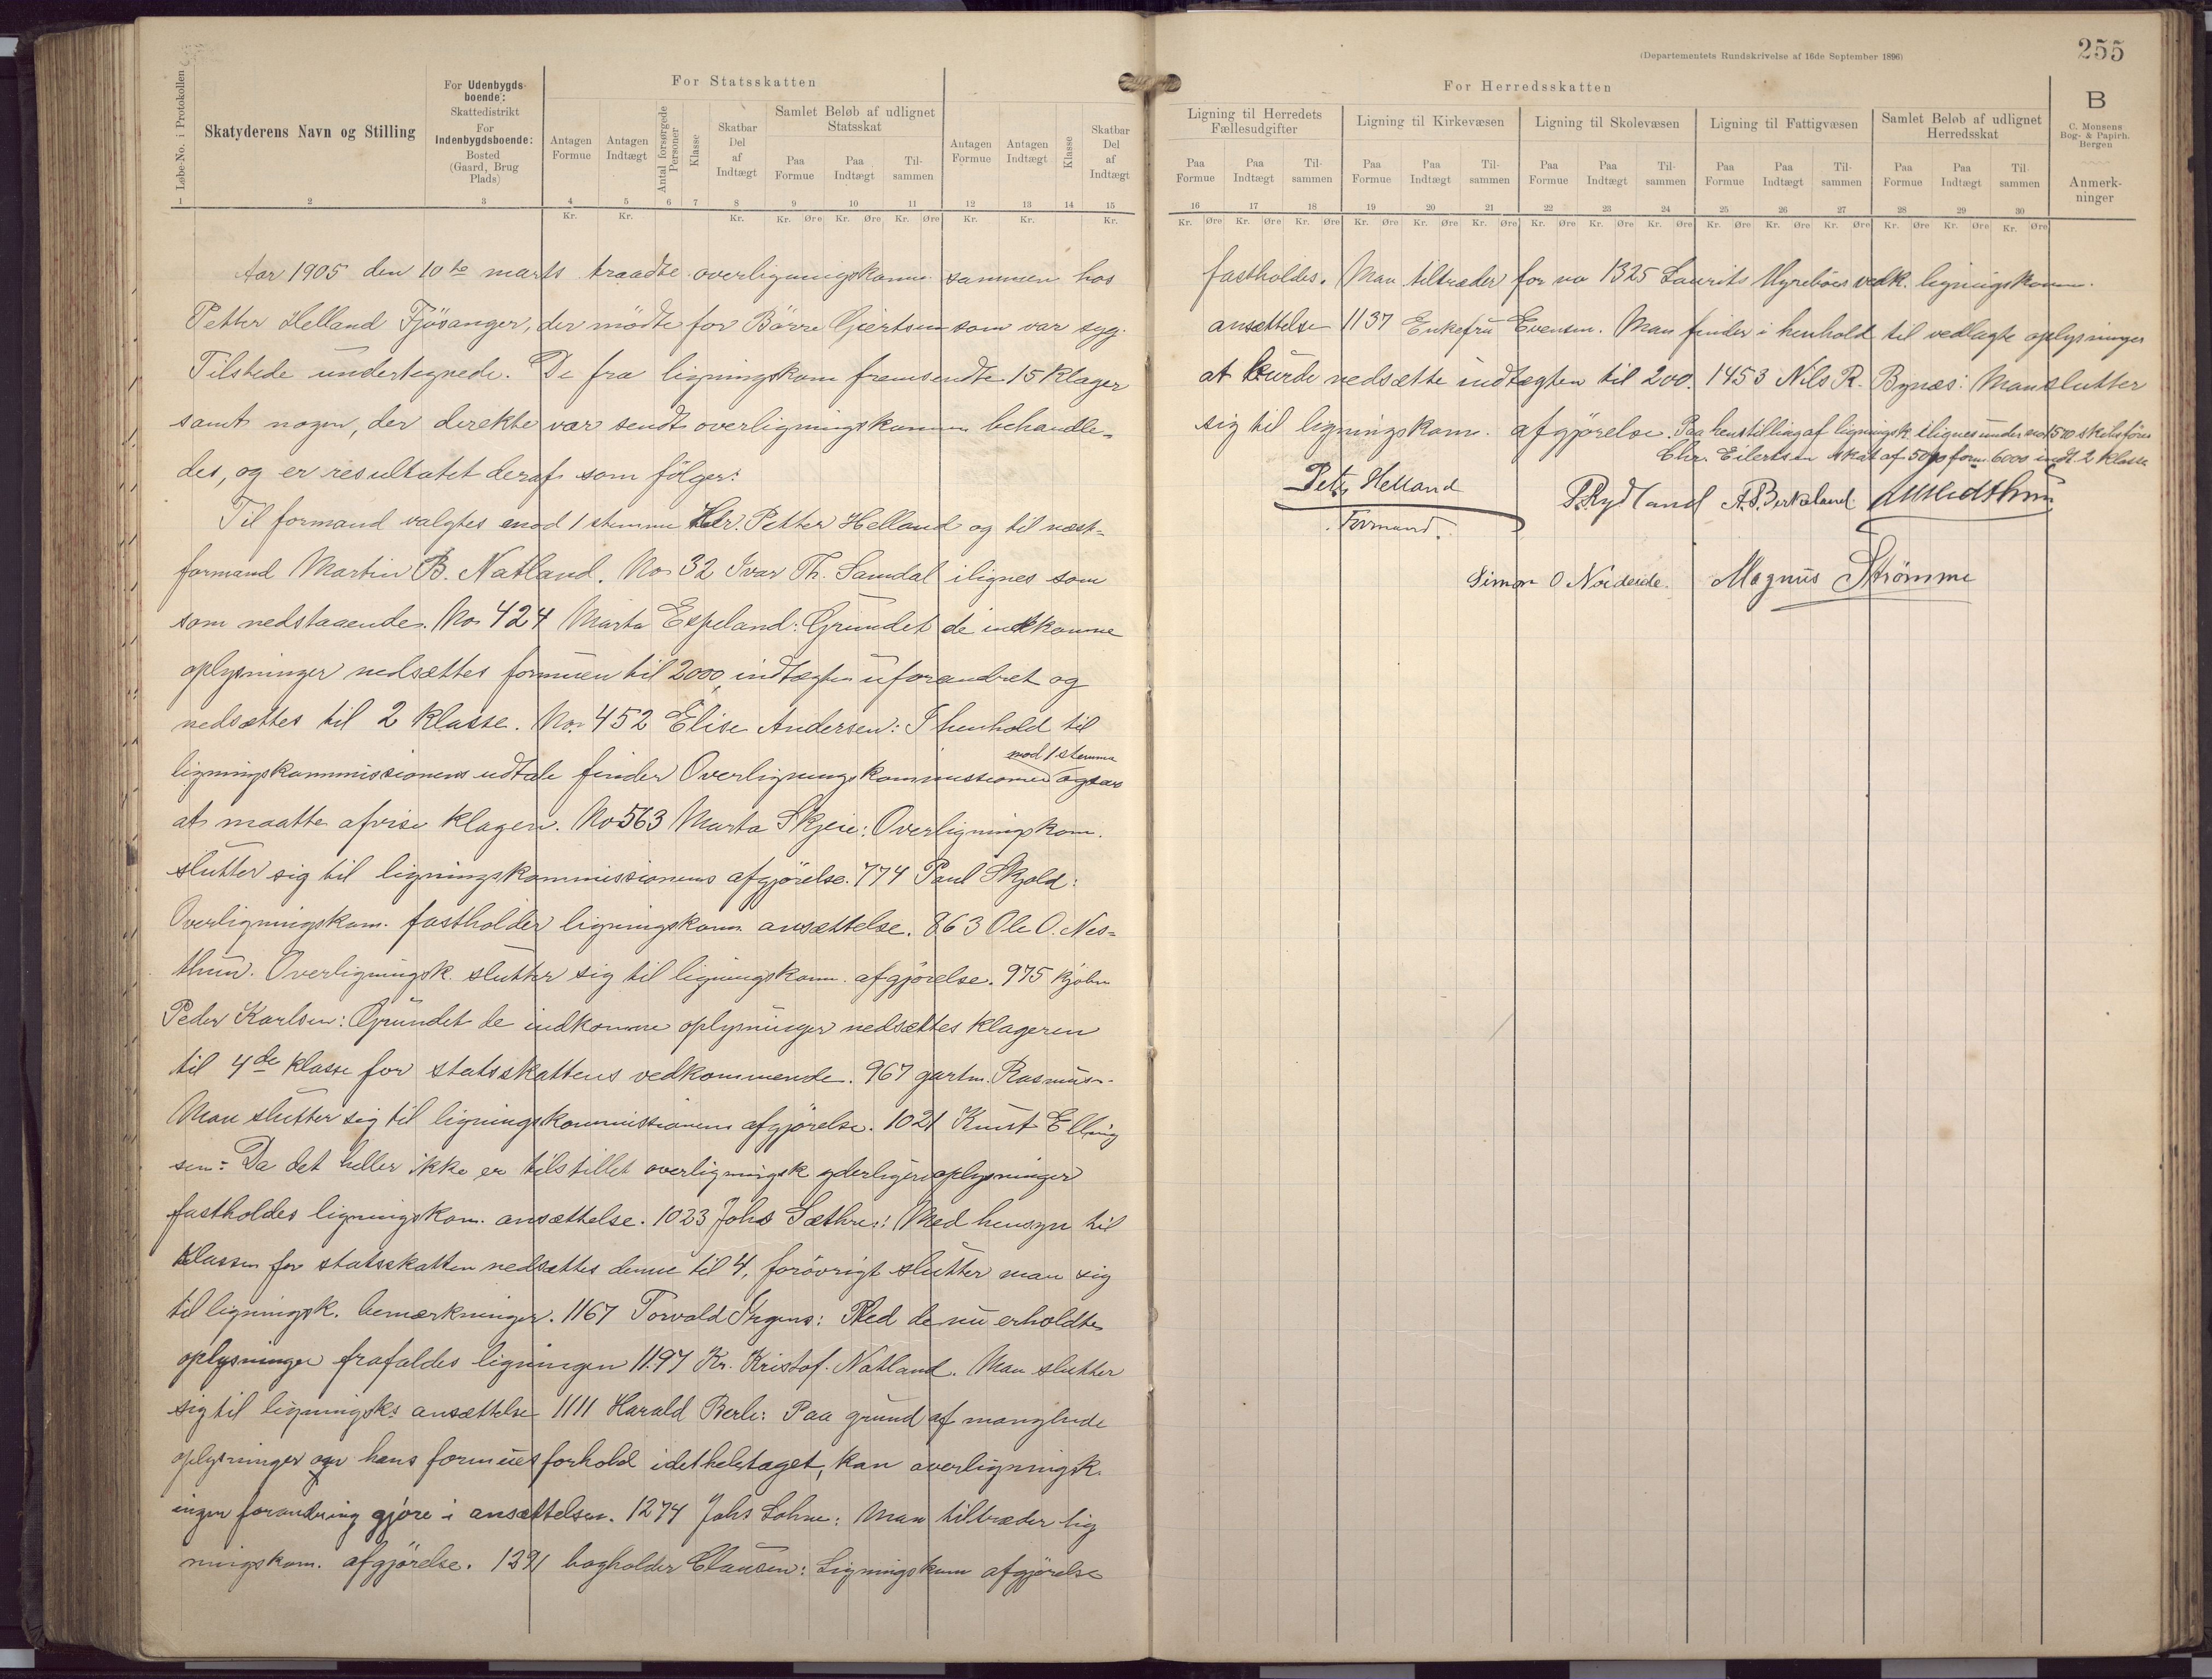 (Departementets Rundskrivelse af 16de September 1896)
255
Løbe-No. i Protokollen
Skatyderens Navn og Stilling
For Udenbygds-boende:
Skattedistrikt
For Indenbygdsboende:
Bosted
(Gaard, Brug Plads)
For Statsskatten
Antagen Formue
Antagen Indtægt
Antal forsørgede Personer
Klasse
Skatbar Del af Indtægt
Samlet Beløb af udlignet Statsskat
Paa Formue
Paa Indtægt
Til-sammen
Antagen Formue
Antagen Indtægt
Klasse
Skatbar Del af Indtægt
1 2 3 4 5 6 7 8 9 10 11 12 13 14 15
Kr. Kr. Kr. Kr. Øre Kr. Øre Kr. Øre Kr. Kr. Kr.
Aar 1905 den 10de marts traadte overligningskomm. sammen hos
Petter Helland Fjösanger, der mödte for Börre Giertsen som var syg.
Tilstede undertegnede. De fra ligningskom fremsendte 15 klager
samt nogen, der direkte var sendt overligningskommn behandle-
des, og er resultatet deraf som fölger:
Til formand valgtes mod 1 stemme Hr. Petter Helland og til næst-
formand Martin B. Natland. No 32 Ivar Th. Samdal ilignes som
som nedstaaende. No 424 Marta Espeland: Grundet de indkomne
oplysninger nedsættes formuen til 2000, indtægten uforandret og
nedsættes til 2 klasse. No. 452 Elise Andersen: I henhold til
mod 1 stemme
ligningskommissionens udtale finder Overligningskommissionen ogsaa
at maatte afvise klagen. No 563 Marta Skjeie: Overligningskom.
slutter sig til ligningskommissionens afgjörelse. 774 Paul Skjold:
Overligningskom. fastholder ligningskom. ansættelse. 863 Ole O. Nes-
thun. Overligningsk. slutter sig til ligningskom. afgjörelse. 975 kjöbm
Peder Karlsen: Grundet de indkomne oplysninger nedsættes klageren
til 4de klasse for statsskattens vedkommende. 967 gartn. Rasmus-
Man slutter sig til ligningskommissionens afgjörelse. 1021 Knut Elling
sen: Da det heller ikke er tilstillet overligningsk yderligere oplysninger
fastholdes ligningskom. ansættelse. 1023 Johs Sæthre: Med hensyn til
klassen for statsskatten nedsættes denne til 4, forövrigt slutter man sig
til ligningsk. bemærkninger. 1167 Torvald : Med de nu erholdte
oplysninger frafaldes ligningen 1197 Kr. Kristof. Natland. Man slutter
sig til ligningsks ansættelse 1111 Harald Berle: Paa grund af manglende
oplysninger om hans formuesforhold idetheletaget, kan overligningsk.
ingen forandring gjöre i ansættelsen. 1274 Johs Lohne: Man tiltræder lig
ningskom. afgjörelse. 1291 bogholder Clausen: Ligningskom afgjörelse
For Herredsskatten
Ligning til Herredets Fællesudgifter
Ligning til Kirkevæsen
Ligning til Skolevæsen
Ligning til Fattigvæsen
Samlet Beløb af udlignet Herredsskat
B
C. Monsens Bog- & Papirh. Bergen
Anmerk-ninger
Paa Formue Paa Indtægt Til-sammen
Paa Formue Paa Indtægt Til-sammen
Paa Formue Paa Indtægt Til-sammen
Paa Formue Paa Indtægt Til-sammen
Paa Formue Paa Indtægt Til-sammen
16 17 18 19 20 21 22 23 24 25 26 27 28 29 30
Kr. Øre Kr. Øre Kr. Øre Kr. Øre Kr. Øre Kr. Øre Kr. Øre Kr. Øre Kr. Øre Kr. Øre Kr. Øre Kr. Øre Kr. Øre Kr. Øre Kr. Øre
fastholdes. Man tiltræder for no 1325 Laurits Myreböes vedk. ligningskomm.
ansættelse 1137 Enkefru Evensen. Man finder i henhold til vedlagte oplysninger
at burde nedsætte indtægten til 200. 1453 Nils R. Bynæs: Man slutter
sig til ligningskom. afgjörelse. Paa henstilling af ligningsk ilignes under no 1570 skibsförer
Chr. Eilertsen skat af 5000 form. 6000 indt. 2 klasse
Petter Helland
Formand.
P. Rydland A. P. Birkeland
Simon O Nordeide. Magnus Strömme